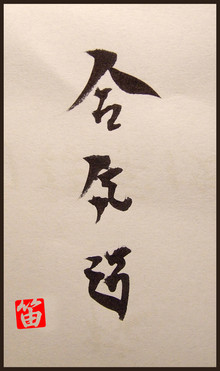 合気道
笛